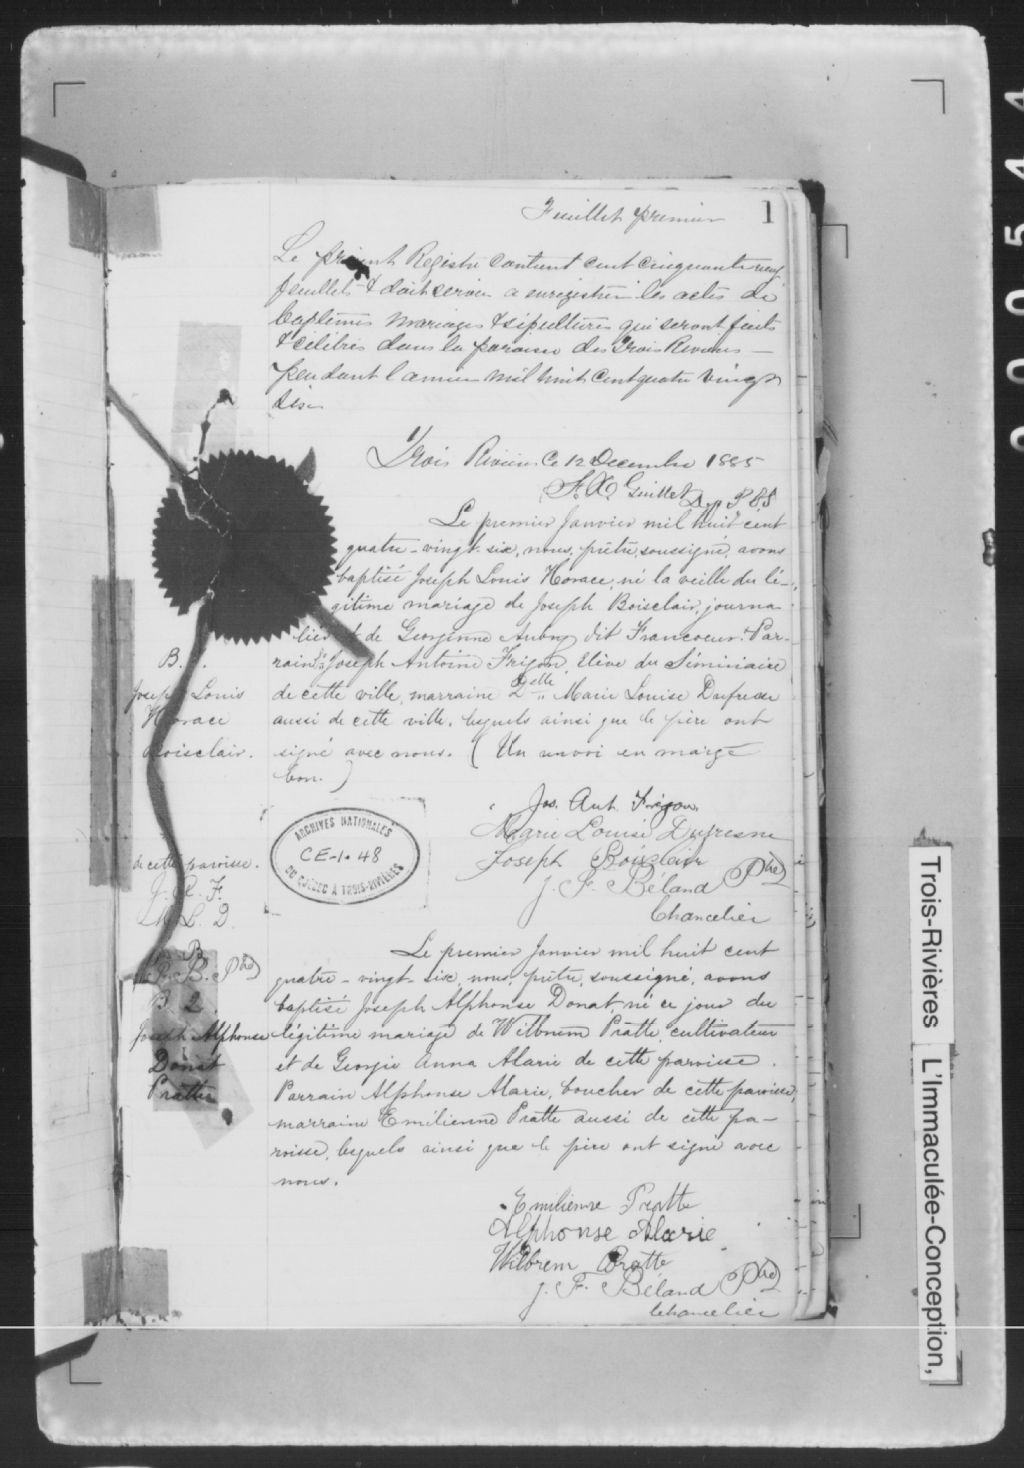 Feuillet premier
1
Le présent Registre contient cent cinquante neuf
feuillets & doit servir a enregistrer les actes de
baptêmes mariages & sépultures qui seront faits
& célébrés dans la paroisse des Trois Rivières
pendant l'année mil huit cent quatre vingt
six
Trois Rivières Ce 12 Decembre 1885
F. X. Guillet Dep
Le premier Janvier mil huit cent
quatre-vingt-six, nous, prêtre, soussigné, avons
baptisé Joseph Louis Horace, né la veille du lé-
gitime mariage de Joseph Boisclair, journa
lier et de Georginne Aubry dit Francoeur. Par-
rain Joseph Antoine Frigon, Elève du Séminaire
de cette ville, marraine Delle Marie Louise Dufresne
aussi de cette ville, lesquels ainsi que le père ont
signé avec nous. (Un renvoi en marge
bon.)
B. 1.
Joseph Louis
Horace
Boisclair.
Jos. Ant. Frigon
Marie Louise Dufresne
Joseph Boisclair
J. F. Béland Ptre
Chancelier
ARCHIVES NATIONALES
CE-1-48
DU QUÉBEC À TROIS-RIVIÈRES
de cette paroisse.
J. A. F.
M. L. D.
J. B.
J. F. B. Ptre
Le premier Janvier mil huit cent
quatre-vingt-six, nous, prêtre, soussigné, avons
baptisé Joseph Alphonse Donat, né ce jour du
légitime mariage de Wilbrem Pratte, cultivateur
et de Georgie Anna Alarie de cette paroisse.
Parrain Alphonse Alarie, boucher de cette paroisse,
marraine Emilienne Pratte aussi de cette pa-
roisse, lesquels ainsi que le père ont signé avec
nous.
B 2
Joseph Alphonse
Donat
Pratte
Emilienne Pratte
Alphonse Alarie
Wilbrem Pratte
J. F. Béland Ptre
Chancelier
Trois-Rivières L'Immaculée-Conception,